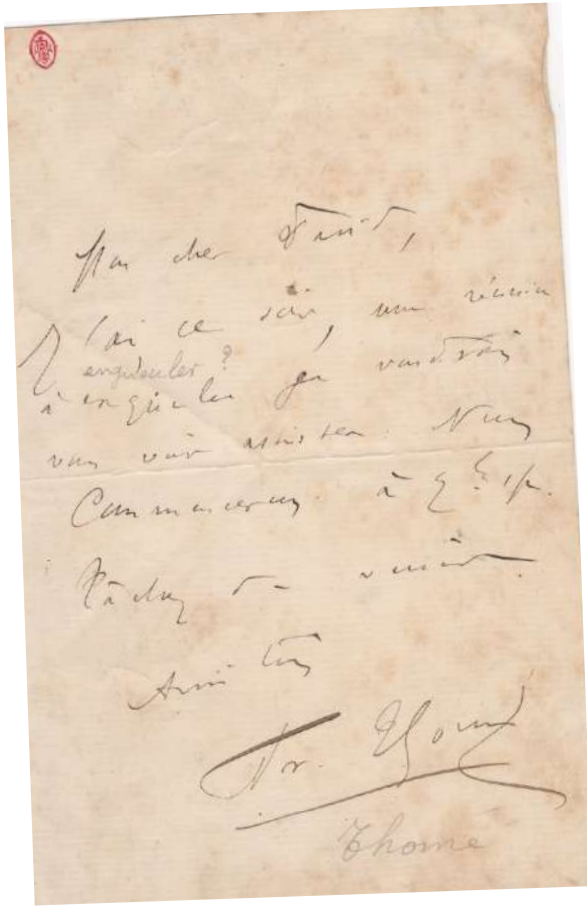 Mon cher David,
J'ai ce soir, une réunion
engueuler ?
à laquelle je voudrais
vous voir assister. Nous
Commencerons à 9h 1/2.
Tâchez de venir.
Amitiés
Fr. Thomé
Thome